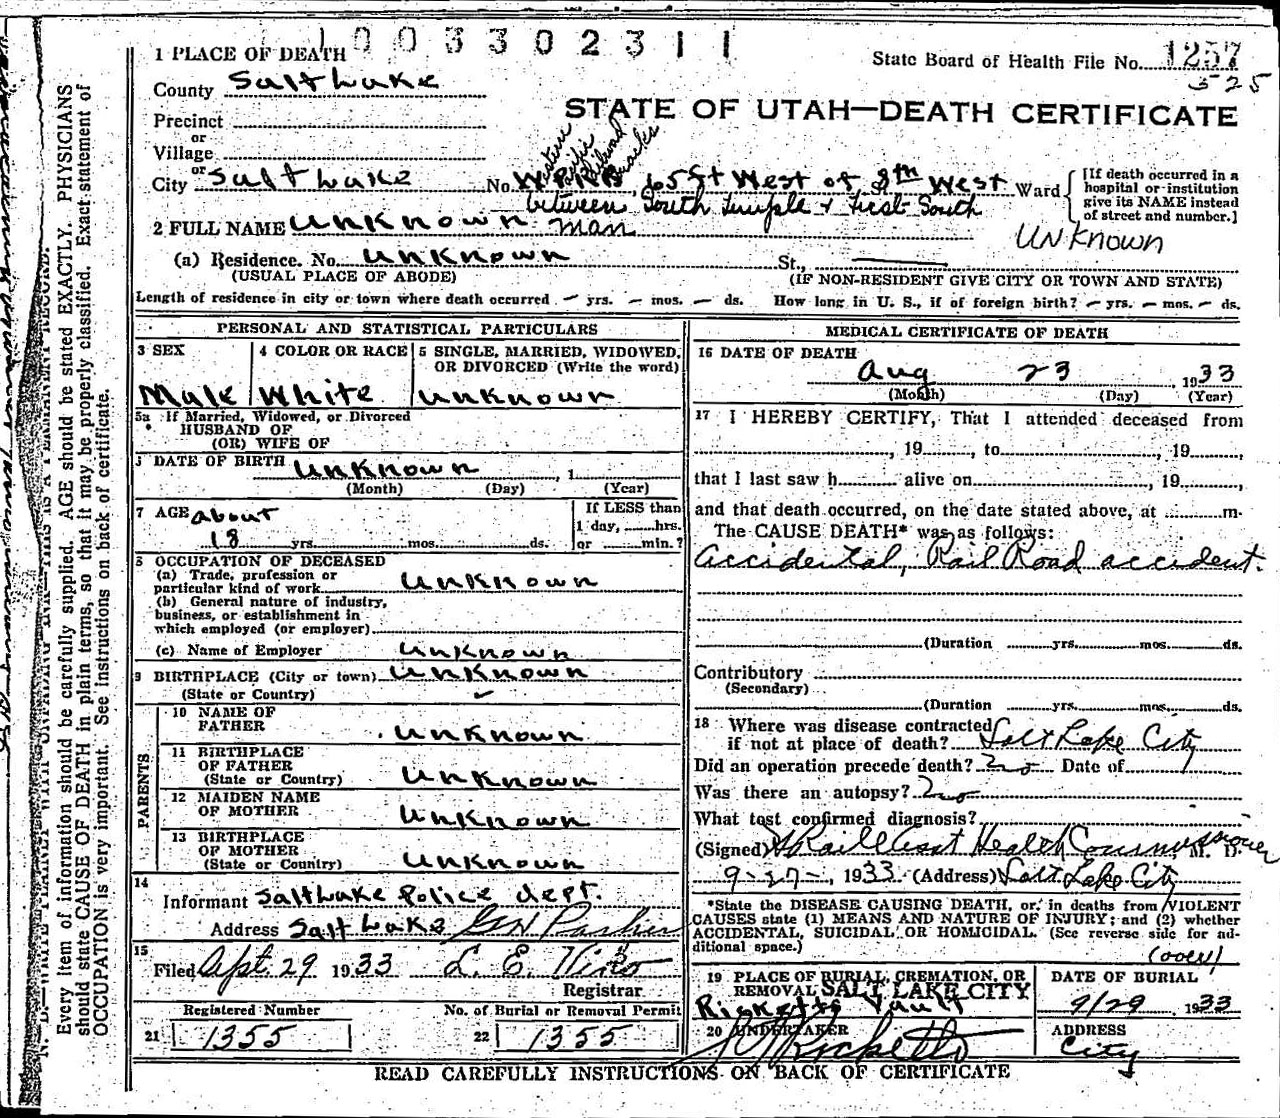 1003302311
State Board of Health File No. 1257
525
STATE OF UTAH—DEATH CERTIFICATE
1 PLACE OF DEATH
County Salt Lake
Precinct
or
Village
or
City Salt Lake No. W.P.RR 65 ft West of 8th West Ward
Western Pacific Railroad Tracks
between South Temple & First South
[If death occurred in a
hospital or institution
give its NAME instead
of street and number.]
2 FULL NAME Unknown man
Unknown
(a) Residence. No. Unknown St.,
(USUAL PLACE OF ABODE) (IF NON-RESIDENT GIVE CITY OR TOWN AND STATE)
Length of residence in city or town where death occurred — yrs. — mos. — ds. How long in U. S., if of foreign birth? — yrs. — mos. — ds.
PERSONAL AND STATISTICAL PARTICULARS
3 SEX
Male
4 COLOR OR RACE
White
5 SINGLE, MARRIED, WIDOWED,
OR DIVORCED (Write the word)
Unknown
5a If Married, Widowed, or Divorced
HUSBAND OF
(OR) WIFE OF
DATE OF BIRTH Unknown , 1
(Month) (Day) (Year)
7 AGE about
18 yrs. mos. ds.
If LESS than
1 day, hrs.
or min.?
OCCUPATION OF DECEASED
(a) Trade, profession or
particular kind of work Unknown
(b) General nature of industry,
business, or establishment in
which employed (or employer)
(c) Name of Employer Unknown
9 BIRTHPLACE (City or town) Unknown
(State or Country)
PARENTS
10 NAME OF
FATHER Unknown
11 BIRTHPLACE
OF FATHER
(State or Country) Unknown
12 MAIDEN NAME
OF MOTHER Unknown
13 BIRTHPLACE
OF MOTHER
(State or Country) Unknown
14
Informant Salt Lake Police dept.
Address Salt Lake
15
Filed Sept. 29 1933 L. E.
Registrar
Registered Number
21 1355
No. of Burial or Removal Permit
22 1355
MEDICAL CERTIFICATE OF DEATH
16 DATE OF DEATH
Aug 23, 1933
(Month) (Day) (Year)
17 I HEREBY CERTIFY, That I attended deceased from
, 19 , to , 19 ,
that I last saw h alive on , 19 ,
and that death occurred, on the date stated above, at m.
The CAUSE DEATH* was as follows:
Accidental, Rail Road accident.
(Duration yrs. mos. ds.
Contributory
(Secondary)
(Duration yrs. mos. ds.
18 Where was disease contracted
if not at place of death? Salt Lake City
Did an operation precede death? No Date of
Was there an autopsy? No
What test confirmed diagnosis?
(Signed) Asst Health Commissioner M. D.
9-27-, 1933 (Address) Salt Lake City
*State the DISEASE CAUSING DEATH, or, in deaths from VIOLENT
CAUSES state (1) MEANS AND NATURE OF INJURY; and (2) whether
ACCIDENTAL, SUICIDAL OR HOMICIDAL. (See reverse side for ad-
ditional space.)
(over)
19 PLACE OF BURIAL, CREMATION, OR
REMOVAL SALT LAKE CITY
Ricketts Vault
DATE OF BURIAL
9/29 1933
20 UNDERTAKER
Ricketts
ADDRESS
City
READ CAREFULLY INSTRUCTIONS ON BACK OF CERTIFICATE
Every item of information should be carefully supplied. AGE should be stated EXACTLY. PHYSICIANS
should state CAUSE OF DEATH in plain terms, so that it may be properly classified. Exact statement of
OCCUPATION is very important. See instructions on back of certificate.